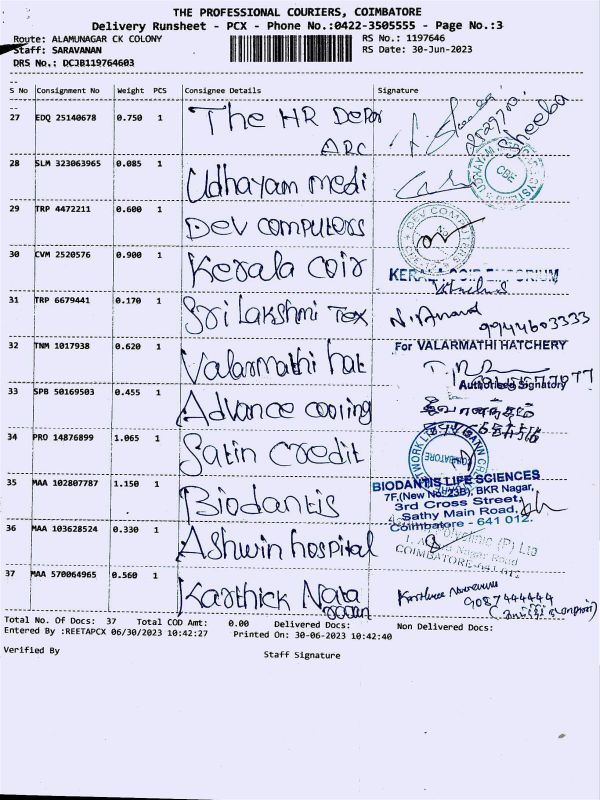 THE PROFESSIONAL COURIERS, COIMBATORE
Delivery Runsheet - PCX - Phone No.:0422-3505555 - Page No.:3
Route: ALAMUNAGAR CK COLONY RS No.: 1197646
Staff: SARAVANAN RS Date: 30-Jun-2023
DRS No.: DCJB119764603
S No Consignment No Weight PCS Consignee Details Signature
27 EDQ 25140678 0.750 1 The HR Depar
ARC Sheeba
28 SLM 323063965 0.085 1 Udhayam medi
29 TRP 4472211 0.600 1 Dev computers DEV COMPUTERS
30 CVM 2520576 0.900 1 Kerala coir KERALA COIR EMPORIUM
31 TRP 6679441 0.170 1 Sri Lakshmi Tex N. Anand
9944603333
32 TNM 1017938 0.620 1 Valarmathi hat For VALARMATHI HATCHERY
Authorised Signatory
33 SPB 50169503 0.455 1 Advance cooling
34 PRO 14876899 1.065 1 Satin Credit COIMBATORE
35 MAA 102807787 1.150 1 Biodantis BIODANTIS LIFE SCIENCES
7F,(New No:23B), BKR Nagar,
3rd Cross Street,
Sathy Main Road,
Coimbatore - 641 012.
36 MAA 103628524 0.330 1 Ashwin hospital (P) Ltd
Nagar Road
COIMBATORE-641 012
37 MAA 570064965 0.560 1 Karthick Nara
9087444444
Total No. Of Docs: 37 Total COD Amt: 0.00 Delivered Docs: Non Delivered Docs:
Entered By :REETAPCX 06/30/2023 10:42:27 Printed On: 30-06-2023 10:42:40
Verified By Staff Signature